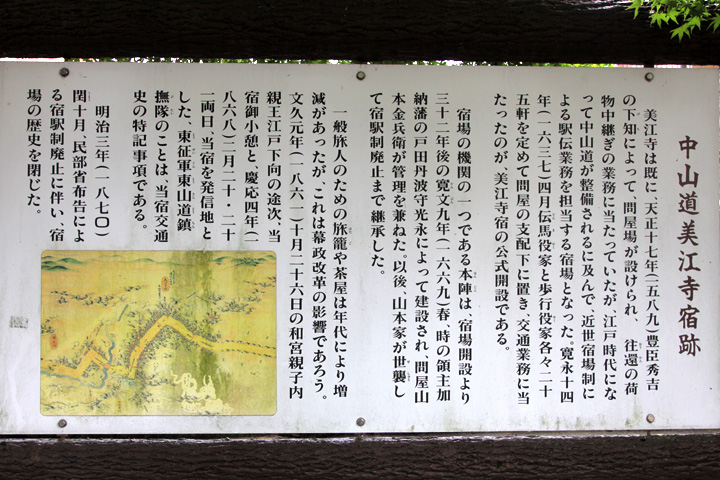 中山道美江寺宿跡
美江寺は既に、天正十七年(一五八九)豊臣秀吉
の下知によって、問屋場が設けられ、往還の荷
物中継ぎの業務に当たっていたが、江戸時代にな
って中山道が整備されるに及んで、近世宿場制に
よる駅伝業務を担当する宿場となった。寛永十四
年(一六三七)四月伝馬役家と歩行役家各々二十
五軒を定めて問屋の支配下に置き、交通業務に当
たったのが、美江寺宿の公式開設である。
宿場の機関の一つである本陣は、宿場開設より
三十二年後の寛文九年(一六六九)春、時の領主加
納藩の戸田丹波守光永によって建設され、問屋山
本金兵衛が管理を兼ねた。以後、山本家が世襲し
て宿駅制廃止まで継承した。
一般旅人のための旅籠や茶屋は年代により増
減があったが、これは幕政改革の影響であろう。
文久元年(一八六一)十月二十六日の和宮親子内
親王江戸下向の途次、当
宿御小憩と、慶応四年(一
八六八)二月二十・二十
一両日、当宿を発信地と
した、東征軍東山道鎮
撫隊のことは、当宿交通
史の特記事項である。
明治三年(一八七〇)
閏十月、民部省布告によ
る宿駅制廃止に伴い、宿
場の歴史を閉じた。